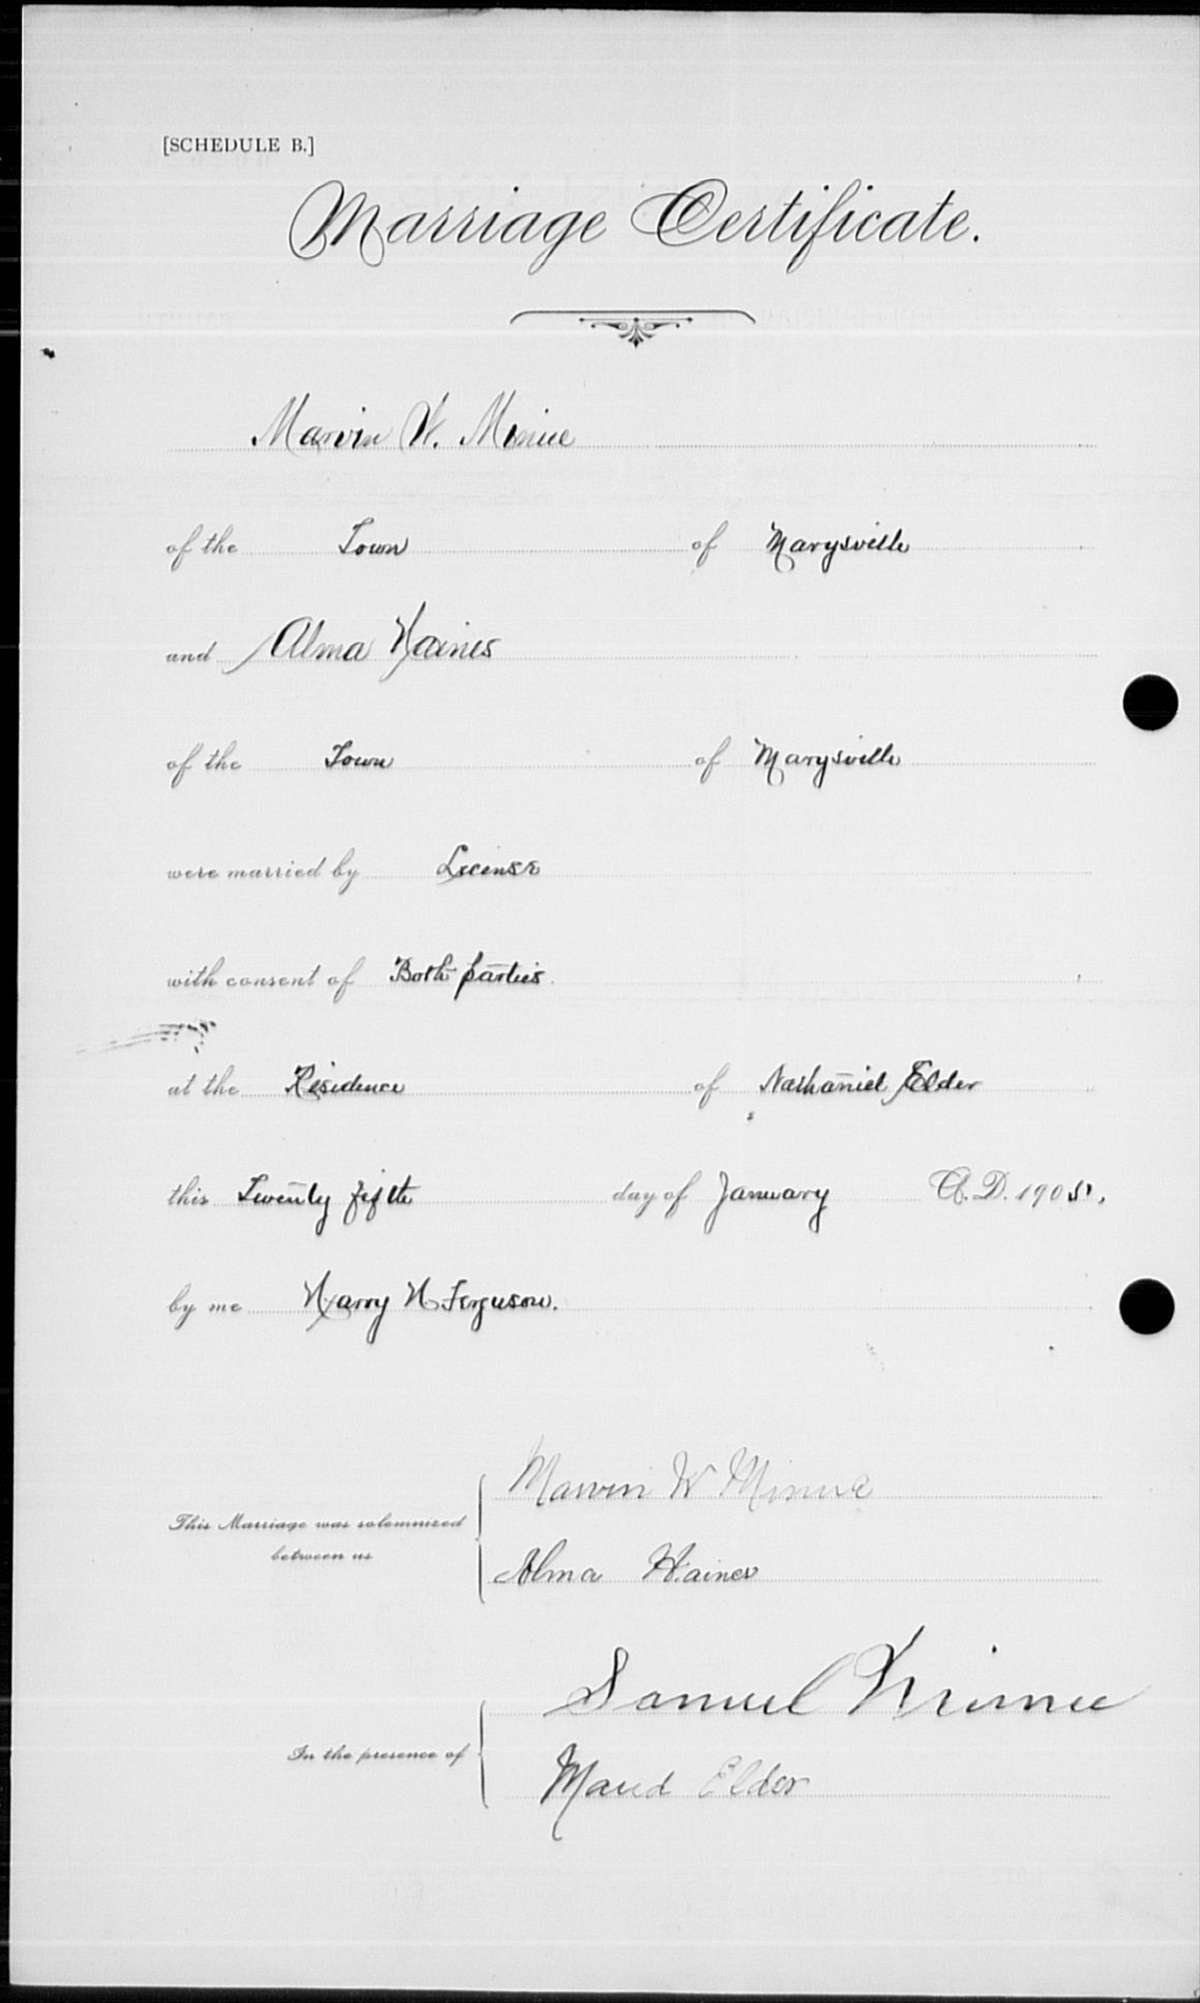 [SCHEDULE B.]
Marriage Certificate.
Marvin W. Minue
of the Town of Marysville
and Alma Haines
of the Town of Marysville
were married by License
with consent of Both parties.
at the Residence of Nathaniel Elder
this Twenty fifth day of January A.D. 1905.
by me Harry H Ferguson.
Marvin W Minue
This Marriage was solemnized
between us
Alma Haines
Samuel
In the presence of
Maud Elder